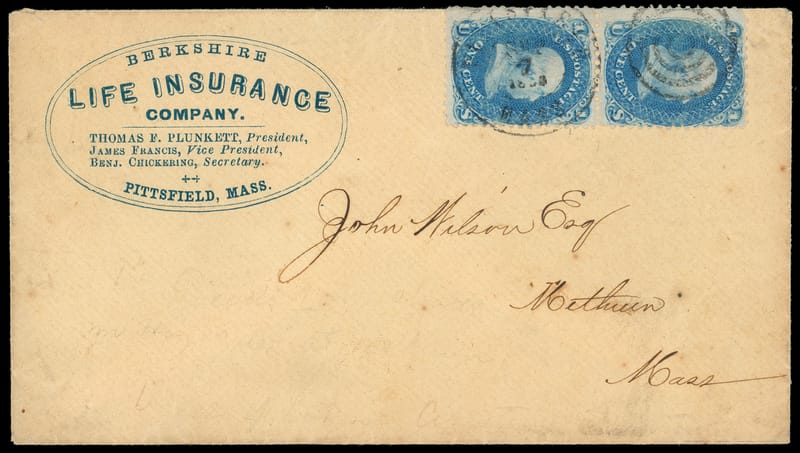 BERKSHIRE
LIFE INSURANCE
COMPANY.
THOMAS F. PLUNKETT, President,
JAMES FRANCIS, Vice President,
BENJ. CHICKERING, Secretary.
PITTSFIELD, MASS.
U.S. POSTAGE
ONE CENT
U.S. POSTAGE
ONE CENT
7
MASS
John Wilson Esq
Methuen
Mass